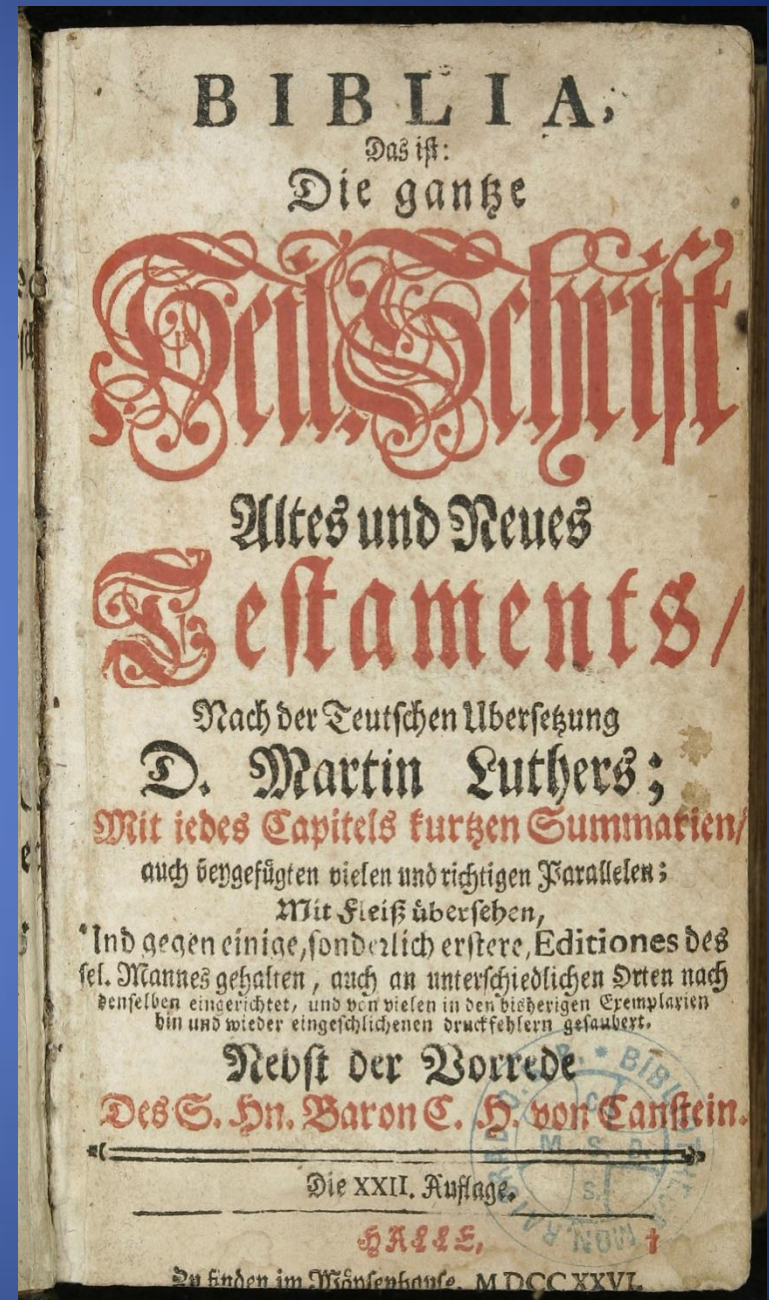 BIBLIA,
Das ist:
Die gantze
Heil. Schrift
Altes und Neues
Testaments/
Nach der Teutschen Ubersetzung
D. Martin Luthers;
Mit iedes Capitels kurtzen Summarien/
auch beygefügten vielen und richtigen Parallelen;
Mit Fleiß übersehen,
Und gegen einige, sonderlich erstere, Editiones des
sel. Mannes gehalten, auch an unterschiedlichen Orten nach
denselben eingerichtet, und von vielen in den bisherigen Exemplarien
hin und wieder eingeschlichenen druckfehlern gesaubert.
Nebst der Vorrede
Des S. Hn. Baron C. H. von Canstein.
Die XXII. Auflage.
HALLE,
Zu finden im Wäysenhause. MDCCXXVI.